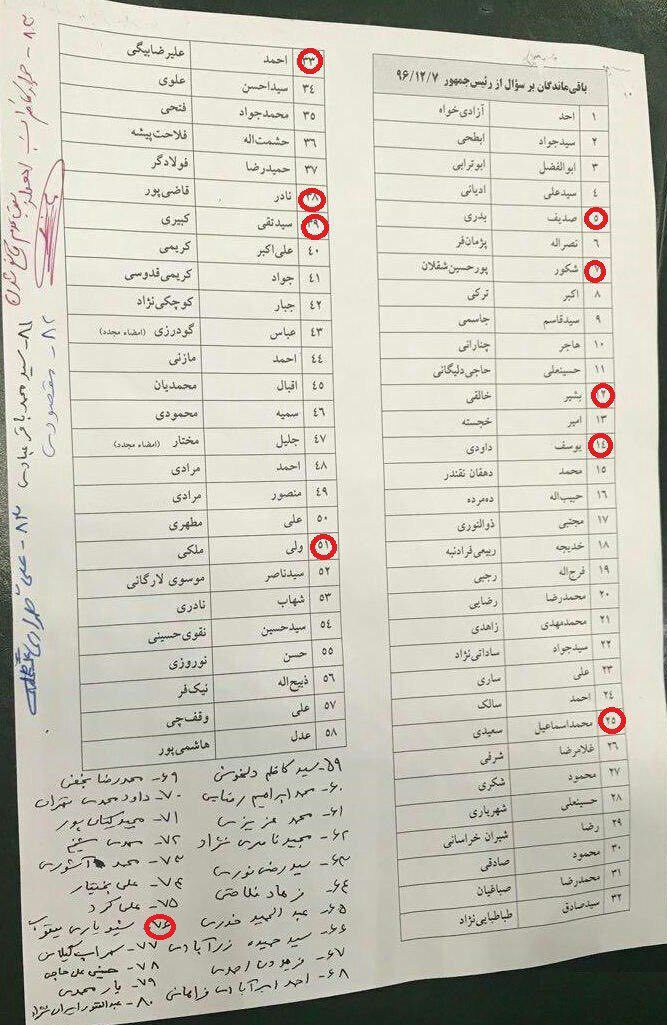 باقی‌ماندگان بر سؤال از رئیس‌جمهور ۹۶/۱۲/۷
۱ احد آزادی‌خواه
۲ سیدجواد ابطحی
۳ ابوالفضل ابوترابی
۴ سیدعلی ادیانی
۵ صدیف بدری
۶ نصراله پژمان‌فر
۷ شکور پورحسین‌شقلان
۸ اکبر ترکی
۹ سیدقاسم جاسمی
۱۰ هاجر چنارانی
۱۱ حسینعلی حاجی‌دلیگانی
۱۲ بشیر خالقی
۱۳ امیر خجسته
۱۴ یوسف داودی
۱۵ محمد دهقان نقندر
۱۶ حبیب‌اله ده‌مرده
۱۷ مجتبی ذوالنوری
۱۸ خدیجه ربیعی‌فرادنبه
۱۹ فرج‌اله رجبی
۲۰ محمدرضا رضایی
۲۱ محمدمهدی زاهدی
۲۲ سیدجواد ساداتی‌نژاد
۲۳ علی ساری
۲۴ احمد سالک
۲۵ محمداسماعیل سعیدی
۲۶ غلامرضا شرفی
۲۷ محمود شکری
۲۸ حسینعلی شهریاری
۲۹ رضا شیران خراسانی
۳۰ محمود صادقی
۳۱ محمدرضا صباغیان
۳۲ سیدصادق طباطبایی‌نژاد
۳۳ احمد علیرضابیگی
۳۴ سیداحسن علوی
۳۵ محمدجواد فتحی
۳۶ حشمت‌اله فلاحت‌پیشه
۳۷ حمیدرضا فولادگر
۳۸ نادر قاضی‌پور
۳۹ سیدتقی کبیری
۴۰ علی‌اکبر کریمی
۴۱ جواد کریمی‌قدوسی
۴۲ جبار کوچکی‌نژاد
۴۳ عباس گودرزی (امضاء مجدد)
۴۴ احمد مازنی
۴۵ اقبال محمدیان
۴۶ سمیه محمودی
۴۷ جلیل مختار (امضاء مجدد)
۴۸ احمد مرادی
۴۹ منصور مرادی
۵۰ علی مطهری
۵۱ ولی ملکی
۵۲ سیدناصر موسوی لارگانی
۵۳ شهاب نادری
۵۴ سیدحسین نقوی‌حسینی
۵۵ حسن نوروزی
۵۶ ذبیح‌اله نیک‌فر
۵۷ علی وقف‌چی
۵۸ عدل هاشمی‌پور
۵۹- سید کاظم دلخوش
۶۰- محمد ابراهیم رضایی
۶۱- محمد عزیزی
۶۲- مجید ناصری نژاد
۶۳- سید رضی نوری
۶۴- فرهاد فلاحتی
۶۵- عبد الحمید خدری
۶۶- سید حمیده زرآبادی
۶۷- فریدون احمدی
۶۸- احد آزادی فراهانی
۶۹- محمدرضا نجفی
۷۰- داود محمدی تهران
۷۱- مجید کیان پور
۷۲- مهدی شیخ
۷۳- محمد آشوری
۷۴- علی بختیار
۷۵- علی کرد
۷۶-
۷۷- سهراب گیلانی
۷۸- حسینعلی حاجی
۷۹- یار محمدی
۸۰- عبدالغفور ایران نژاد
۸۱- سید محمد باقر عبادی
۸۲- مقصودی
۸۳-